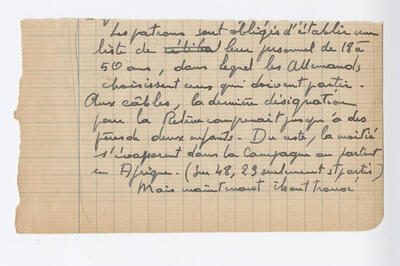 Les patrons sont obligés d'établir une
liste de leur personnel de 18 à
50 ans, dans lequel les Allemands
choisissent ceux qui doivent partir.
Aux câbles, la dernière désignation
pour la Relève comprenait jusqu'à des
pères de deux enfants. Du reste, la moitié
s'évaporent dans la Campagne ou partent
en Afrique. (Sur 48, 23 seulement st partis)
Mais maintenant ils ont trouvé